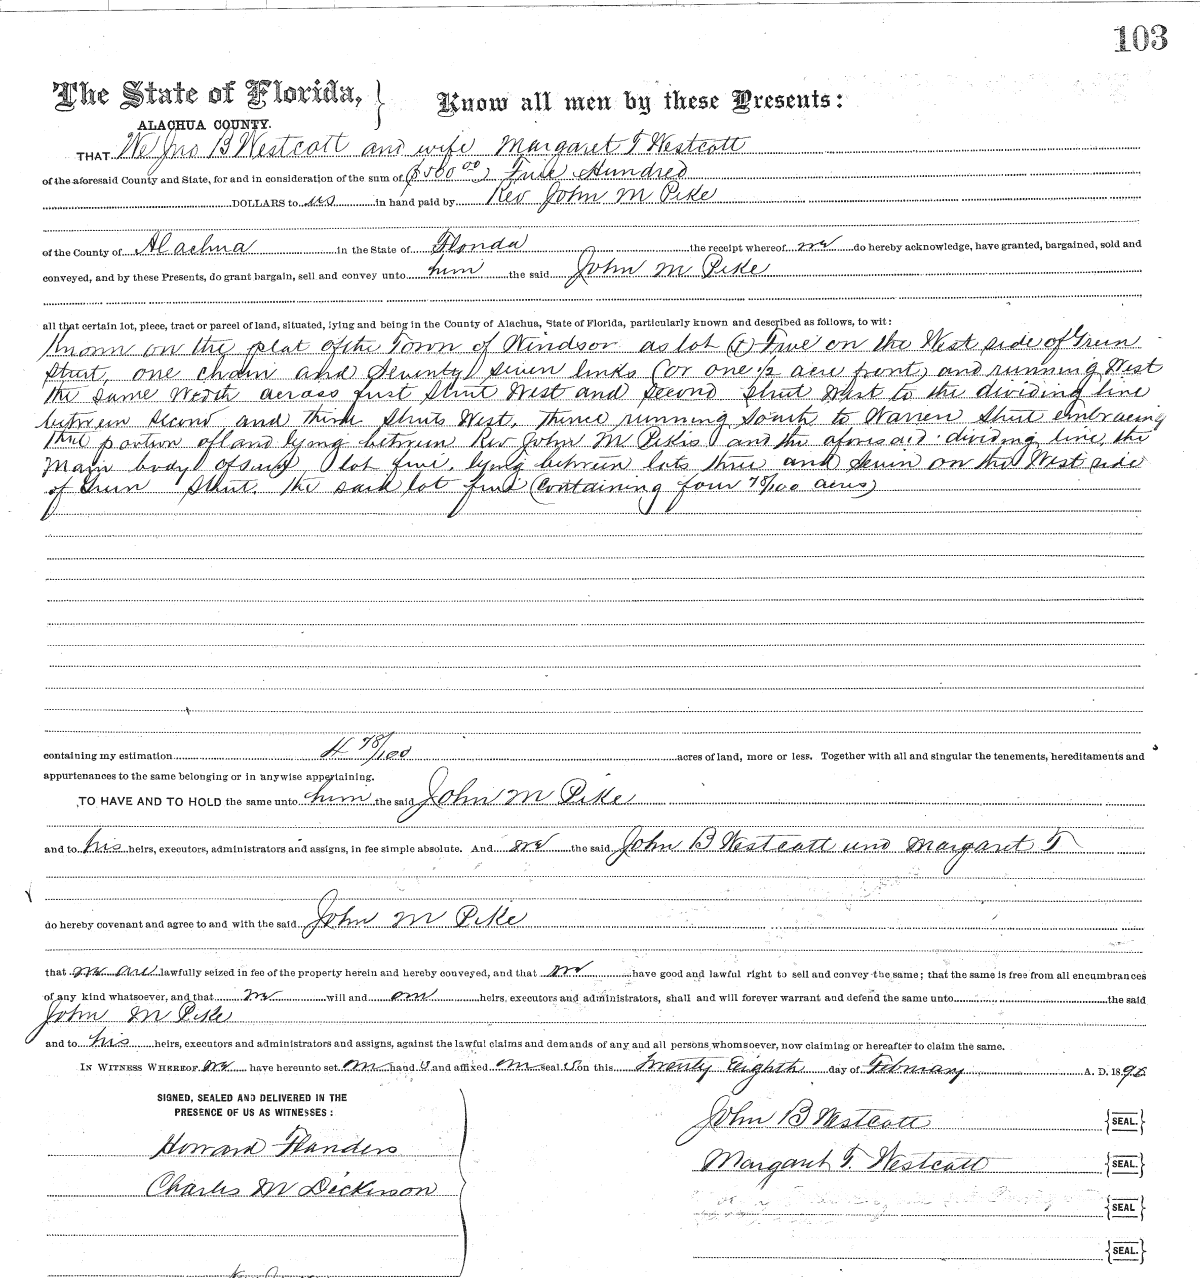 103
The State of Florida, Know all men by these Presents:
ALACHUA COUNTY.
THAT We Jno B Westcott and wife Margaret T Westcott
of the aforesaid County and State, for and in consideration of the sum of ($500 00) Five Hundred
DOLLARS to us in hand paid by Rev John M Pike
of the County of Alachua in the State of Florida the receipt whereof we do hereby acknowledge, have granted, bargained, sold and
conveyed, and by these Presents, do grant bargain, sell and convey unto him the said John M Pike
all that certain lot, piece, tract or parcel of land, situated, lying and being in the County of Alachua, State of Florida, particularly known and described as follows, to wit:
Known on the plat of the Town of Windsor as lot Five on the West side of Green
Street, one chain and Seventy Seven links (or one 1/2 acre front) and running West
the same Width across first Street West and Second Street West to the dividing line
between Second and third Streets West, thence running South to Warren Street embracing
that portion of land lying between Rev John M Pikes and the aforesaid dividing line, the
Main body of said lot five, lying between lots three and Seven on the West side
of Green Street. The said lot five (containing four 78/100 acres)
containing my estimation 4 78/100 acres of land, more or less. Together with all and singular the tenements, hereditaments and
appurtenances to the same belonging or in anywise appertaining.
TO HAVE AND TO HOLD the same unto him the said John M Pike
and to his heirs, executors, administrators and assigns, in fee simple absolute. And we the said John B Westcott and Margaret T
do hereby covenant and agree to and with the said John M Pike
that we are lawfully seized in fee of the property herein and hereby conveyed, and that we have good and lawful right to sell and convey the same; that the same is free from all encumbrances
of any kind whatsoever, and that we will and our heirs, executors and administrators, shall and will forever warrant and defend the same unto the said
John M Pike
and to his heirs, executors and administrators and assigns, against the lawful claims and demands of any and all persons whomsoever, now claiming or hereafter to claim the same.
IN WITNESS WHEREOF we have hereunto set our hand s and affixed our seal s on this Twenty Eighth day of February A. D. 18
SIGNED, SEALED AND DELIVERED IN THE
PRESENCE OF US AS WITNESSES:
John B Westcott SEAL.
Howard Flanders
Margaret T. Westcott SEAL.
Charles M Dickinson
SEAL
SEAL.